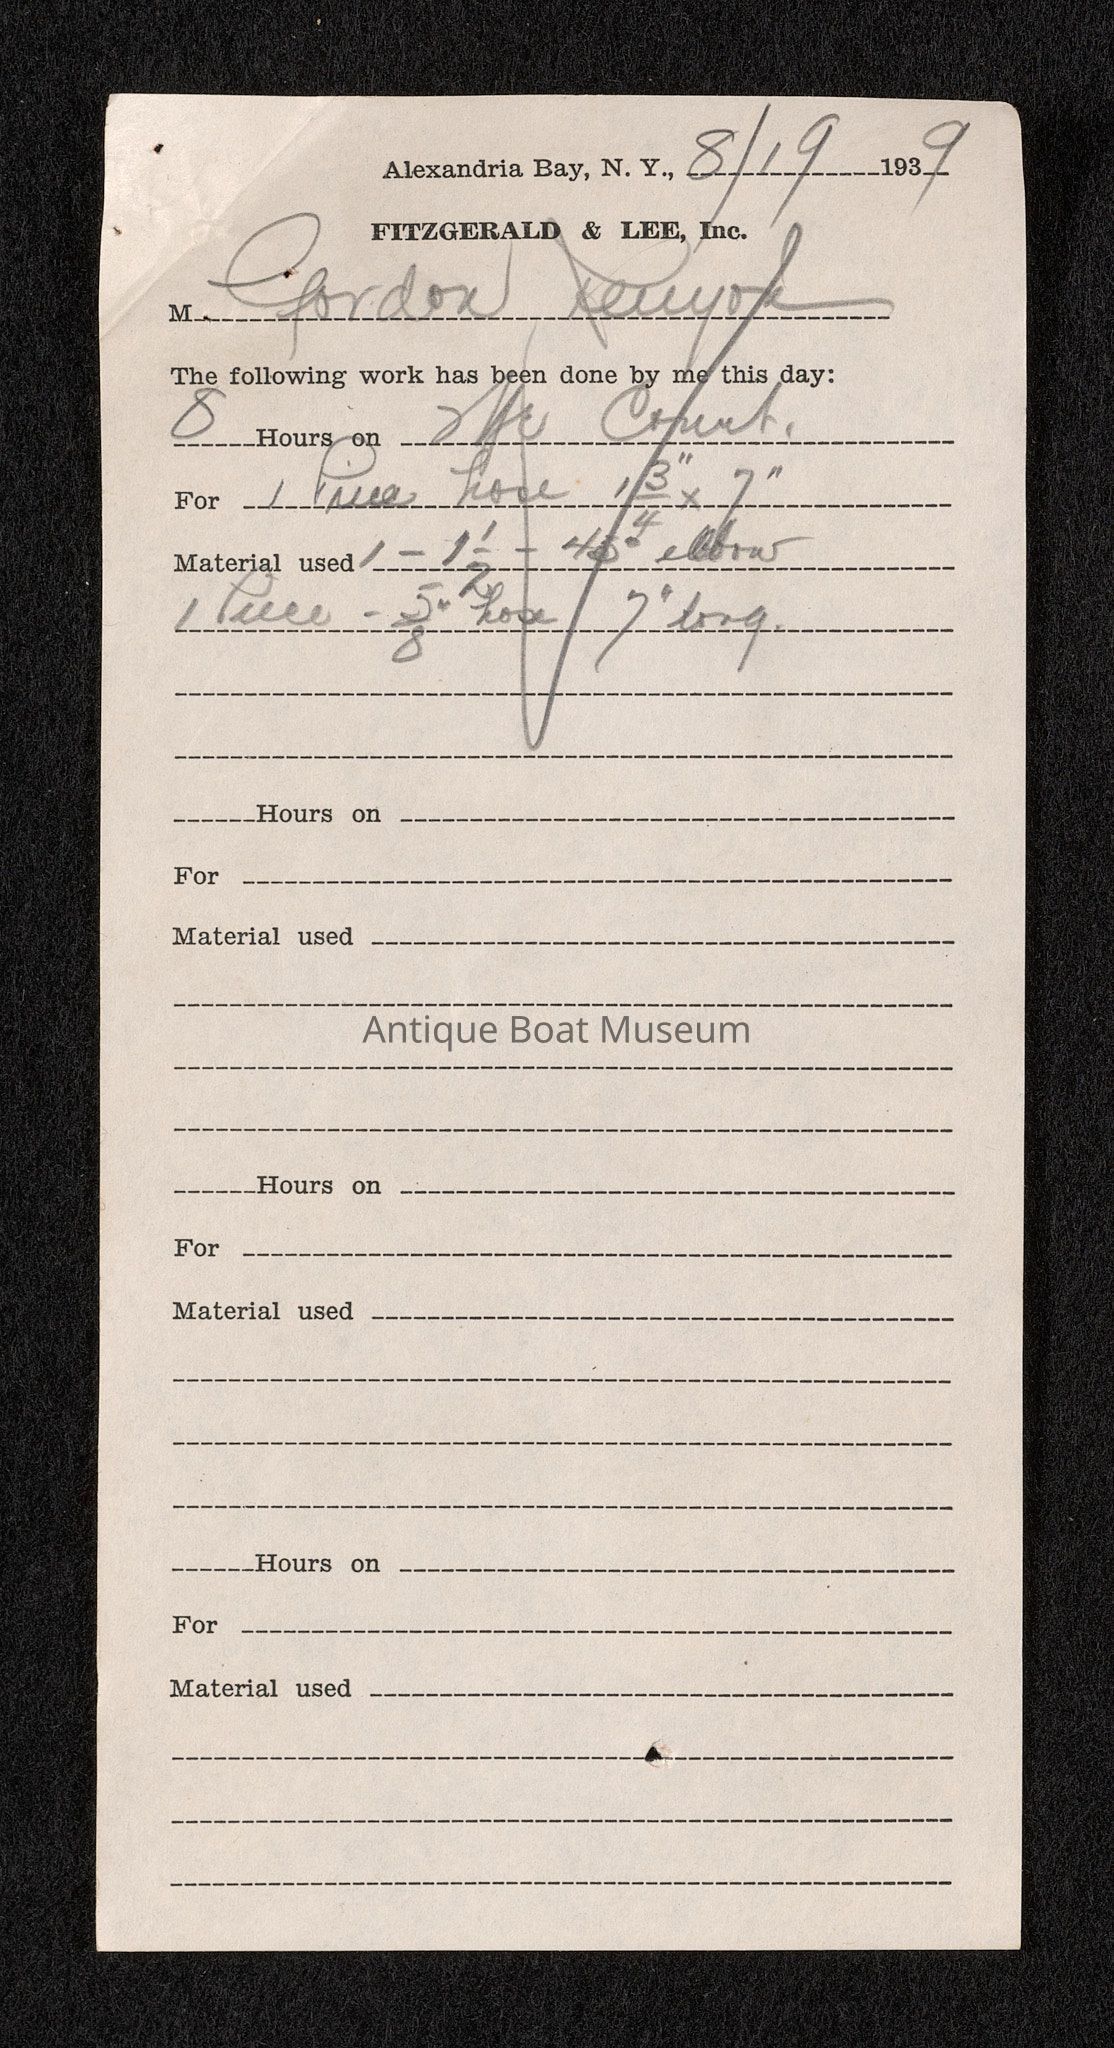 Alexandria Bay, N. Y., 8/19 1939
FITZGERALD & LEE, Inc.
M Gordon Kenyon
The following work has been done by me this day:
8 Hours on
For 1 Piece hose 1 3/4" x 7"
Material used 1 - 1 1/2 - 45° elbow
1 Piece - 5/8" hose 7" long.
Hours on
For
Material used
Antique Boat Museum
Hours on
For
Material used
Hours on
For
Material used